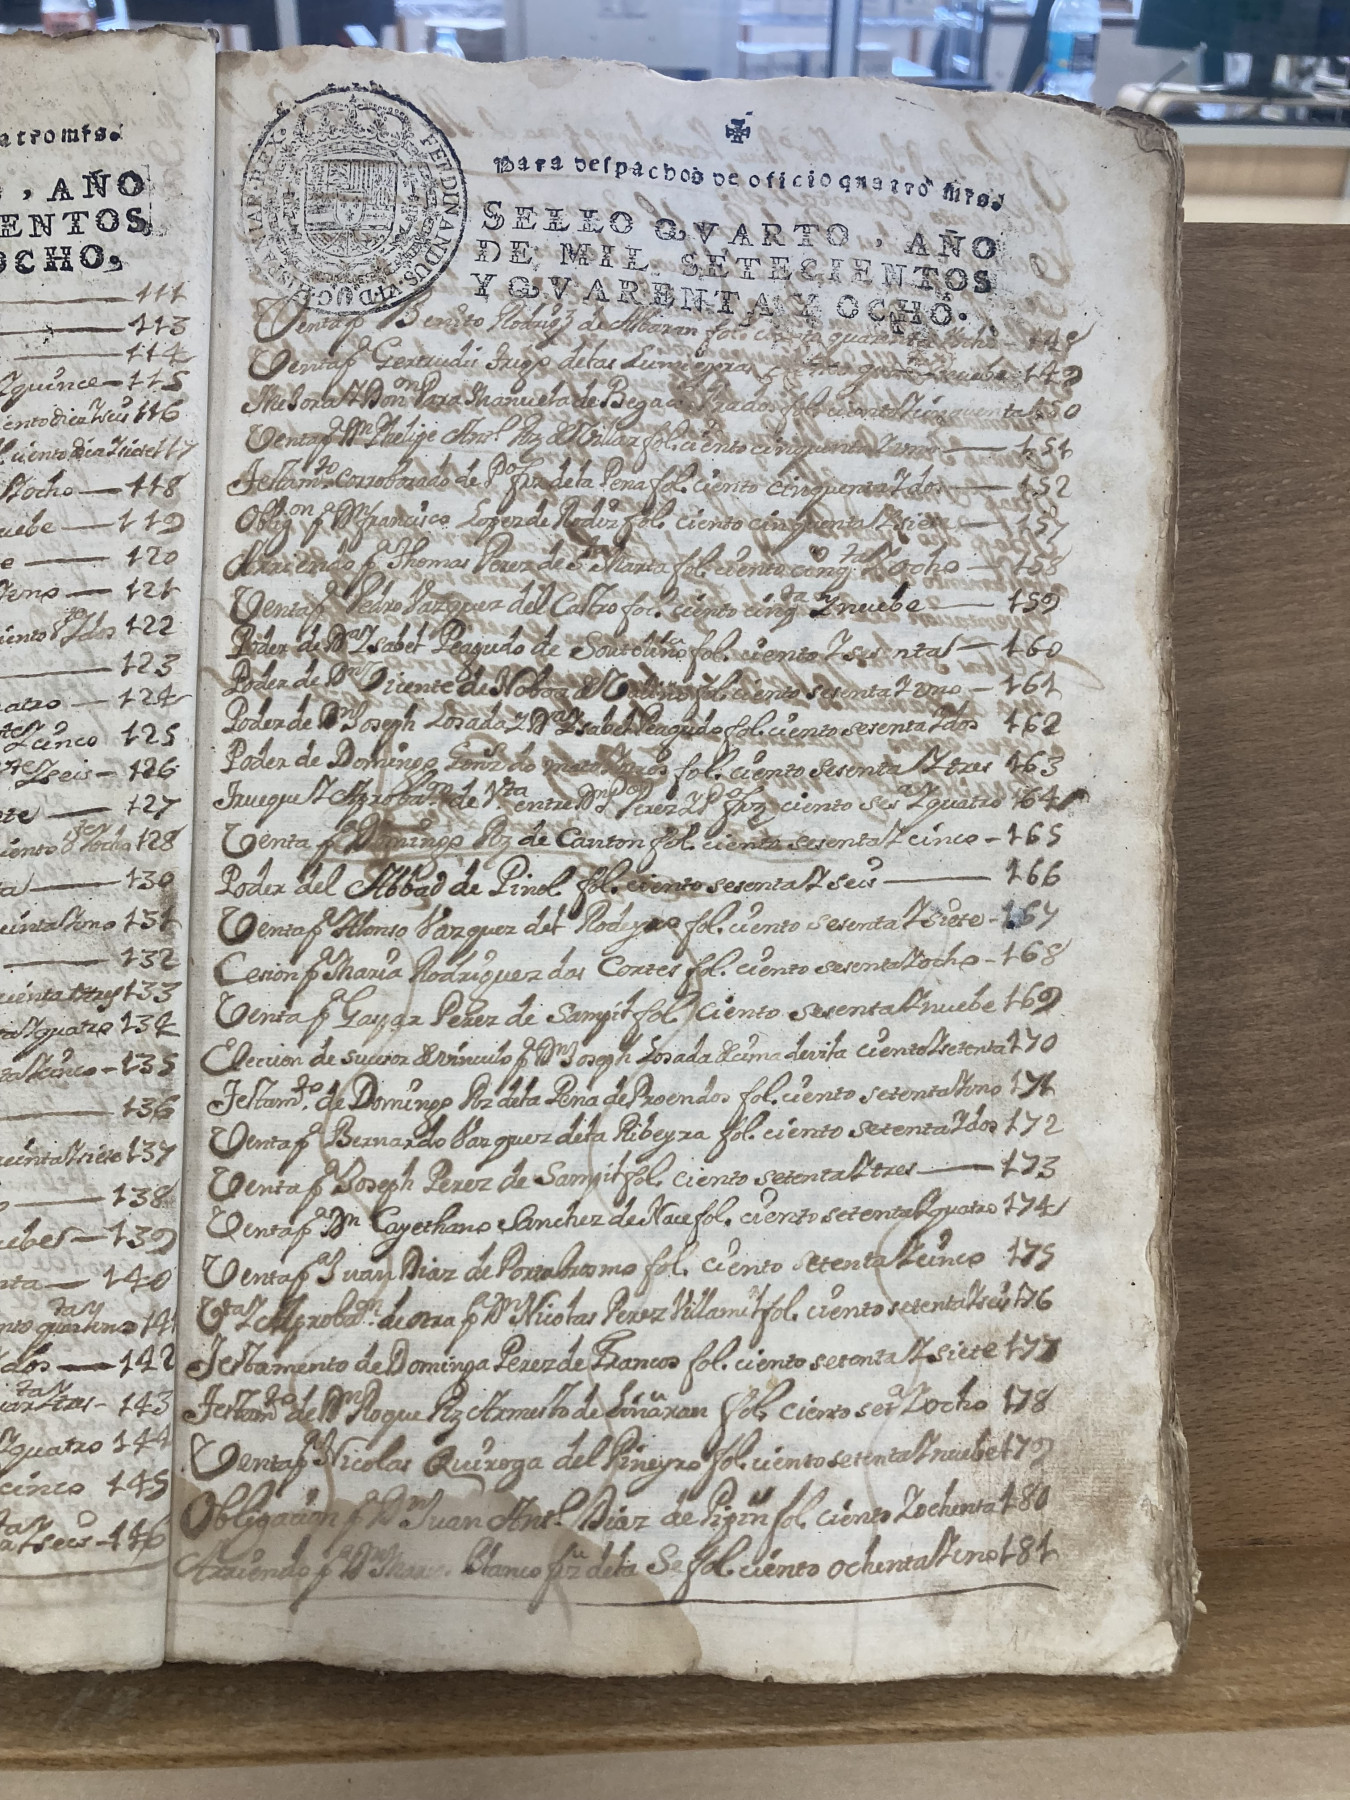 atromrs.
, AÑO
ENTOS
OCHO.
111
113
114
Y quince - 115
ciento diez Y seis 116
ciento diez Y siete 117
Y ocho - 118
nuebe - 119
120
Y uno - 121
ciento Y dos 122
123
quatro - 124
Y cinco 125
Y seis - 126
127
ciento Y ocho 128
130
treinta Y uno 131
132
treinta Y tres 133
Y quatro 134
Y cinco - 135
136
treinta Y siete 137
138
nuebe - 139
140
141
Y dos - 142
Y tres - 143
Y quatro 144
cinco 145
Y seis - 146
Para despachos de oficio quatro mrs.
SELLO QVARTO, AÑO
DE MIL SETECIENTOS
Y QVARENTA Y OCHO.
FERDINANDUS VI D G HISPANIAR REX
Venta pr Benito Rodrigz de Albaran fol. ciento quarenta Y ocho - 148
Venta pr Gertrudis de las fol. ciento Y nuebe - 149
Mejora Y Don Para Manuela de Bega Prados fol. ciento Y cinquenta 150
Venta pr Dn Phelipe Antt. Villar fol. ciento cinquenta Y uno - 151
Testamto. corroborado de Po frz de la Pena fol. ciento cinquenta Y dos - 152
Oblig.on pr Dn francisco Lopez de fol. ciento cinquenta Y siete - 157
Arriendo pr Thomas Perez de Sta Marta fol. ciento cinq.ta Y ocho - 158
Venta pr Pedro Vazquez del Castro fol. ciento cinq.ta Y nuebe - 159
Poder de Da Ysabel Peagudo de Soutoliño fol. ciento Y sesenta - 160
Poder de Dn Vicente de Noboa fol. ciento sesenta Y uno - 161
Poder de Dn Joseph Losada Y Da Ysabel Peagudo fol. ciento sesenta Y dos 162
Poder de Domingo Gonz do mato Y otros fol. ciento sesenta Y tres 163
Trueque Y Aprobaon. de Vta entre Dn Po Perez Y Po frz ciento ses.ta Y quatro 164
Venta pr Domingo Rz de Canton fol. ciento sesenta Y cinco - 165
Poder del Abbad de Pinol fol. ciento sesenta Y seis - 166
Venta pr Alonso Vazquez del Rodeyro fol. ciento sesenta Y siete - 167
Cesion pr Maria Rodriguez das Cortes fol. ciento sesenta Y ocho - 168
Venta pr Gaspar Perez de Sampil fol. ciento sesenta Y nuebe 169
Eleccion de sucesor de vinculo pr Dn Joseph Losada de cima de vila ciento Y setenta 170
Testamto. de Domingo Rz de la Pena de Proendos fol. ciento setenta Y uno 171
Venta pr Bernardo Vazquez de la Ribeyra fol. ciento setenta Y dos 172
Venta pr Joseph Perez de Sampil fol. ciento setenta Y tres - 173
Venta pr Dn Cayethano Sanchez de Nace fol. ciento setenta Y quatro 174
Venta pr Juan Diaz de Portobromo fol. ciento setenta Y cinco 175
Vta Y Aprobaon. de otra pr Dn Nicolas Perez Villamil fol. ciento setenta Y seis 176
Testamento de Dominga Perez de Francos fol. ciento setenta Y siete 177
Testamto de Dn Roque Rz Armesto de Liñaran fol. ciento set.ta Y ocho 178
Venta pr Nicolas Quiroga del Pineyro fol. ciento setenta Y nuebe 179
Obligacion pr Dn Juan Antt. Diaz de Pipin fol. ciento Y ochenta 180
Arriendo pr Dn Blanco frz de la Se fol. ciento ochenta Y uno 181